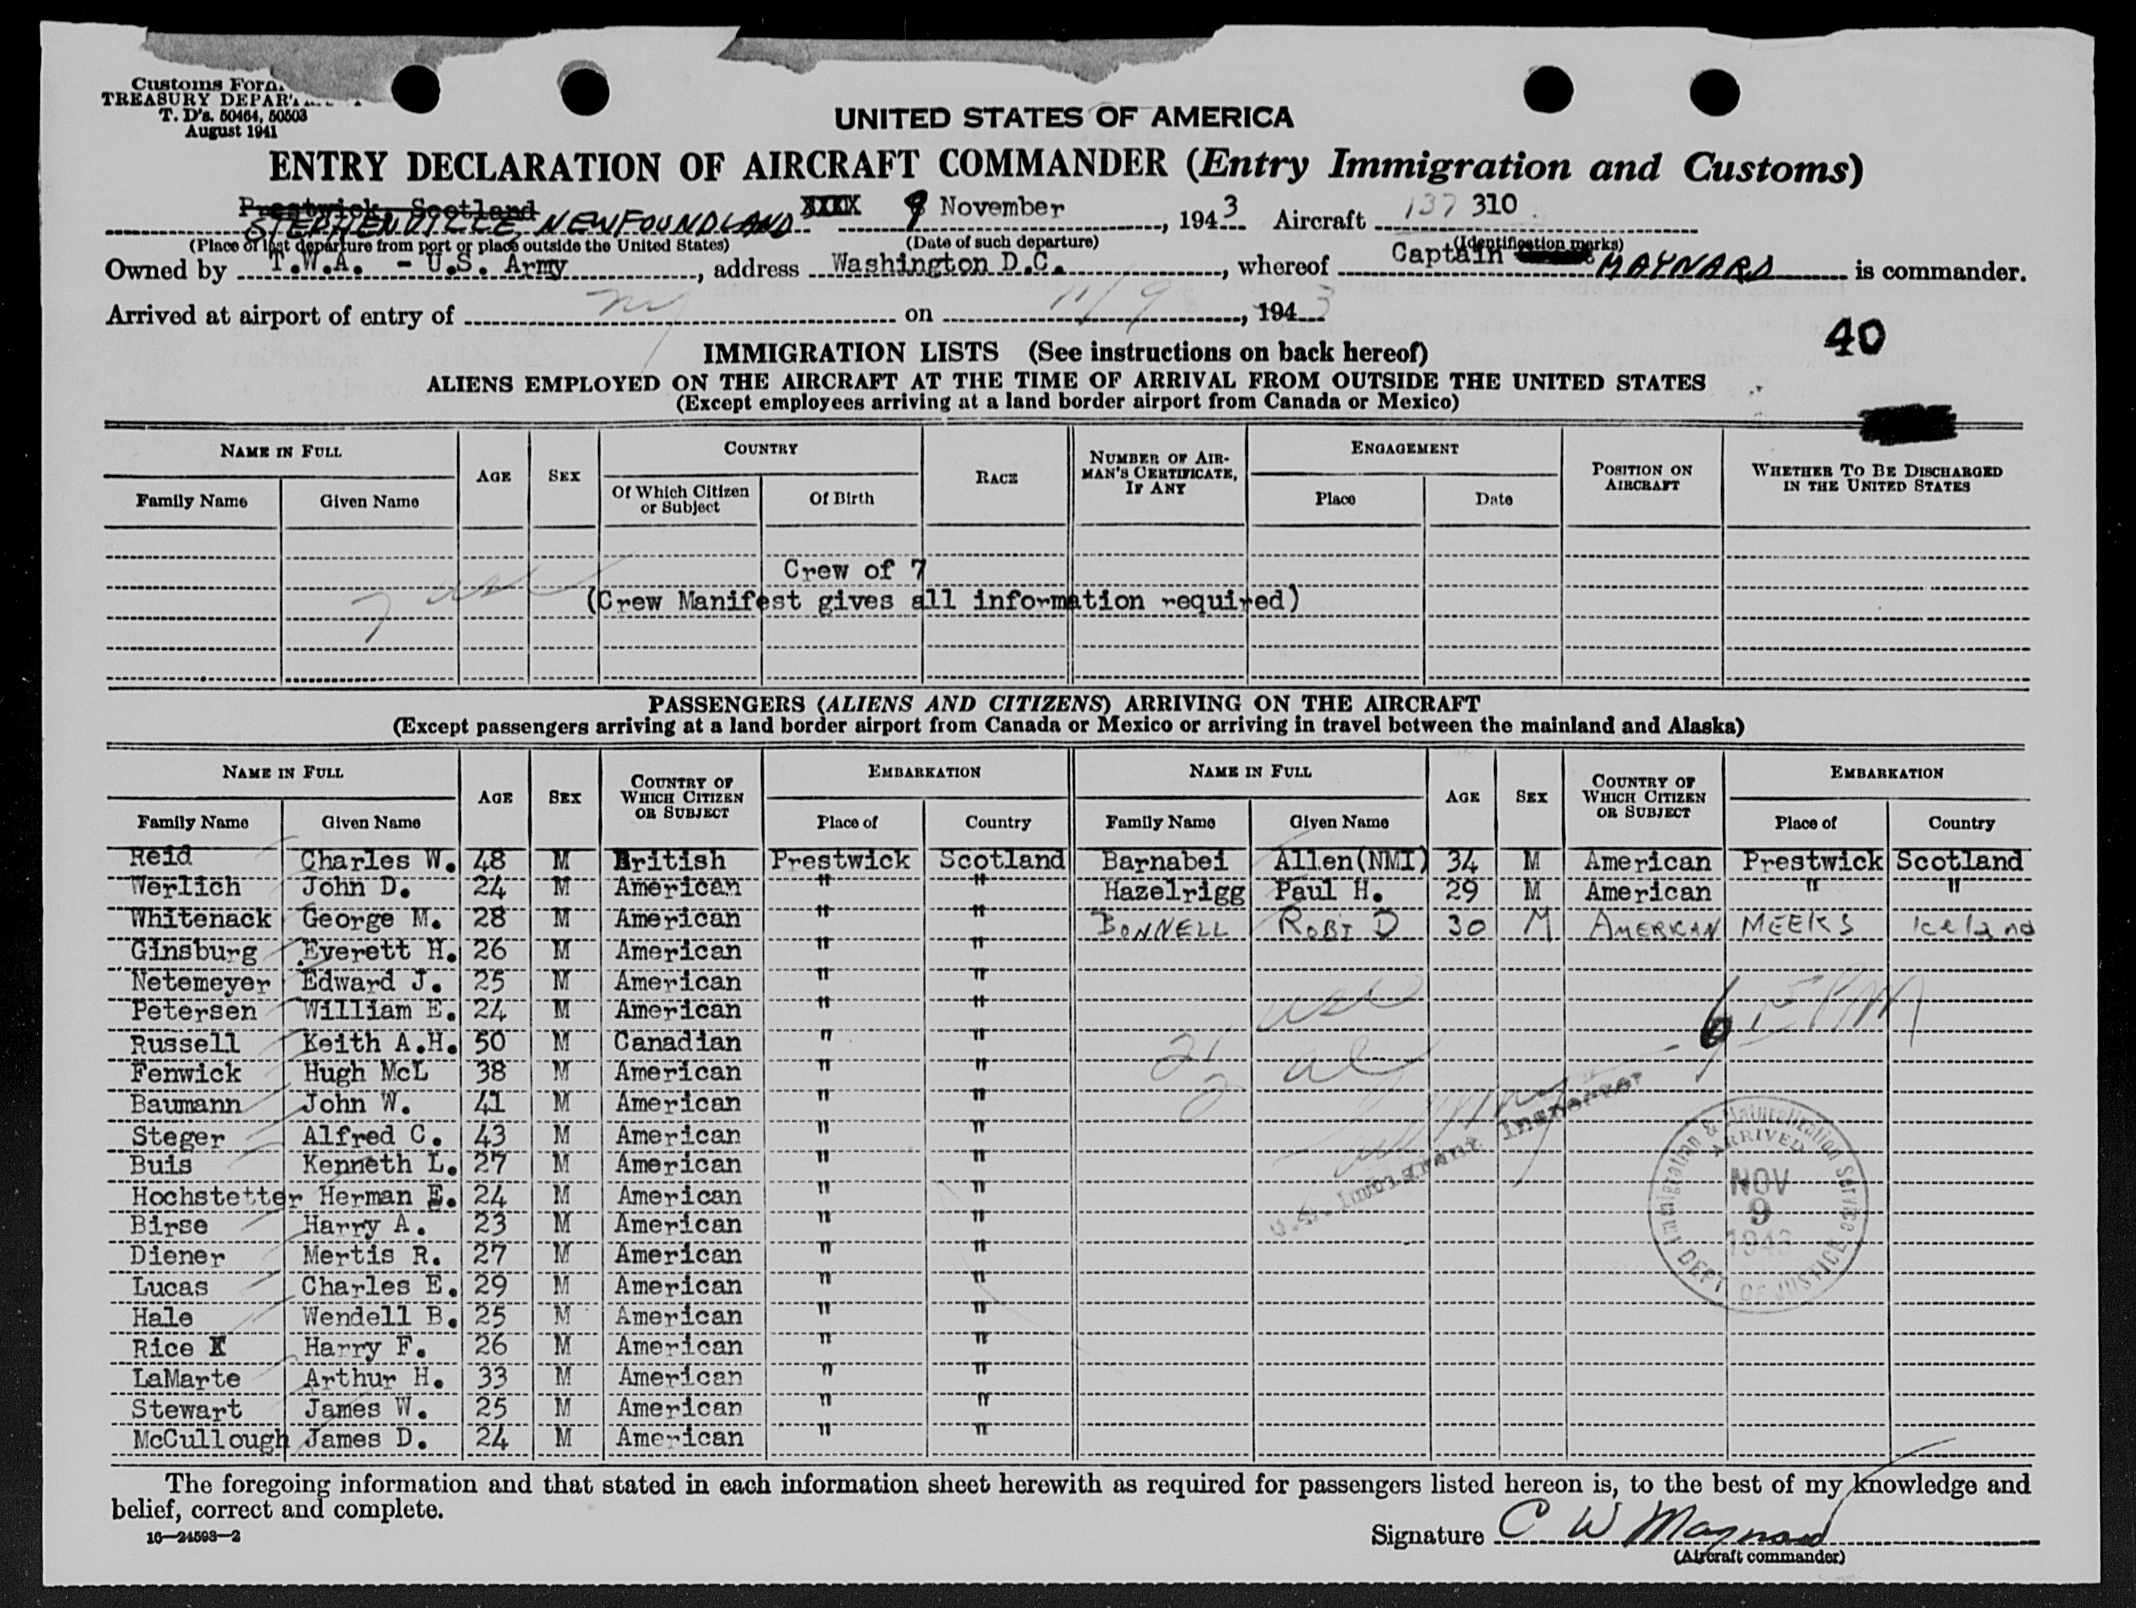 Customs Form
TREASURY DEPARTMENT
T. D's. 50464, 50503
August 1941
UNITED STATES OF AMERICA
ENTRY DECLARATION OF AIRCRAFT COMMANDER (Entry Immigration and Customs)
Prestwick, Scotland XXXX 9 November, 1943 Aircraft 137 310
STEPHENVILLE NEWFOUNDLAND
(Place of last departure from port or place outside the United States) (Date of such departure) (Identification marks)
Owned by T.W.A. - U.S. Army, address Washington D.C., whereof Captain MAYNARD is commander.
Arrived at airport of entry of NY on 11/9, 1943
40
IMMIGRATION LISTS (See instructions on back hereof)
ALIENS EMPLOYED ON THE AIRCRAFT AT THE TIME OF ARRIVAL FROM OUTSIDE THE UNITED STATES
(Except employees arriving at a land border airport from Canada or Mexico)
NAME IN FULL AGE SEX COUNTRY RACE NUMBER OF AIRMAN'S CERTIFICATE, IF ANY ENGAGEMENT POSITION ON AIRCRAFT WHETHER TO BE DISCHARGED IN THE UNITED STATES
Family Name Given Name Of Which Citizen or Subject Of Birth Place Date
Crew of 7
7 usc
(Crew Manifest gives all information required)
PASSENGERS (ALIENS AND CITIZENS) ARRIVING ON THE AIRCRAFT
(Except passengers arriving at a land border airport from Canada or Mexico or arriving in travel between the mainland and Alaska)
NAME IN FULL AGE SEX COUNTRY OF WHICH CITIZEN OR SUBJECT EMBARKATION NAME IN FULL AGE SEX COUNTRY OF WHICH CITIZEN OR SUBJECT EMBARKATION
Family Name Given Name Place of Country Family Name Given Name Place of Country
Reid Charles W. 48 M British Prestwick Scotland Barnabei Allen(NMI) 34 M American Prestwick Scotland
Werlich John D. 24 M American " " Hazelrigg Paul H. 29 M American " "
Whitenack George M. 28 M American " " BONNELL ROBT D 30 M AMERICAN MEEKS Iceland
Ginsburg Everett H. 26 M American " "
Netemeyer Edward J. 25 M American " "
Petersen William E. 24 M American " "
Russell Keith A.H. 50 M Canadian " "
Fenwick Hugh McL 38 M American " "
Baumann John W. 41 M American " "
Steger Alfred C. 43 M American " "
Buis Kenneth L. 27 M American " "
Hochstetter Herman E. 24 M American " "
Birse Harry A. 23 M American " "
Diener Mertis R. 27 M American " "
Lucas Charles E. 29 M American " "
Hale Wendell B. 25 M American " "
Rice Harry F. 26 M American " "
LaMarte Arthur H. 33 M American " "
Stewart James W. 25 M American " "
McCullough James D. 24 M American " "
21 usc
2 al
PM
U.S. Immigrant Inspector
Immigration & Naturalization Service
ARRIVED
NOV
9
1943
DEPT OF JUSTICE
The foregoing information and that stated in each information sheet herewith as required for passengers listed hereon is, to the best of my knowledge and
belief, correct and complete.
16—24593—2
Signature C W Maynard
(Aircraft commander)